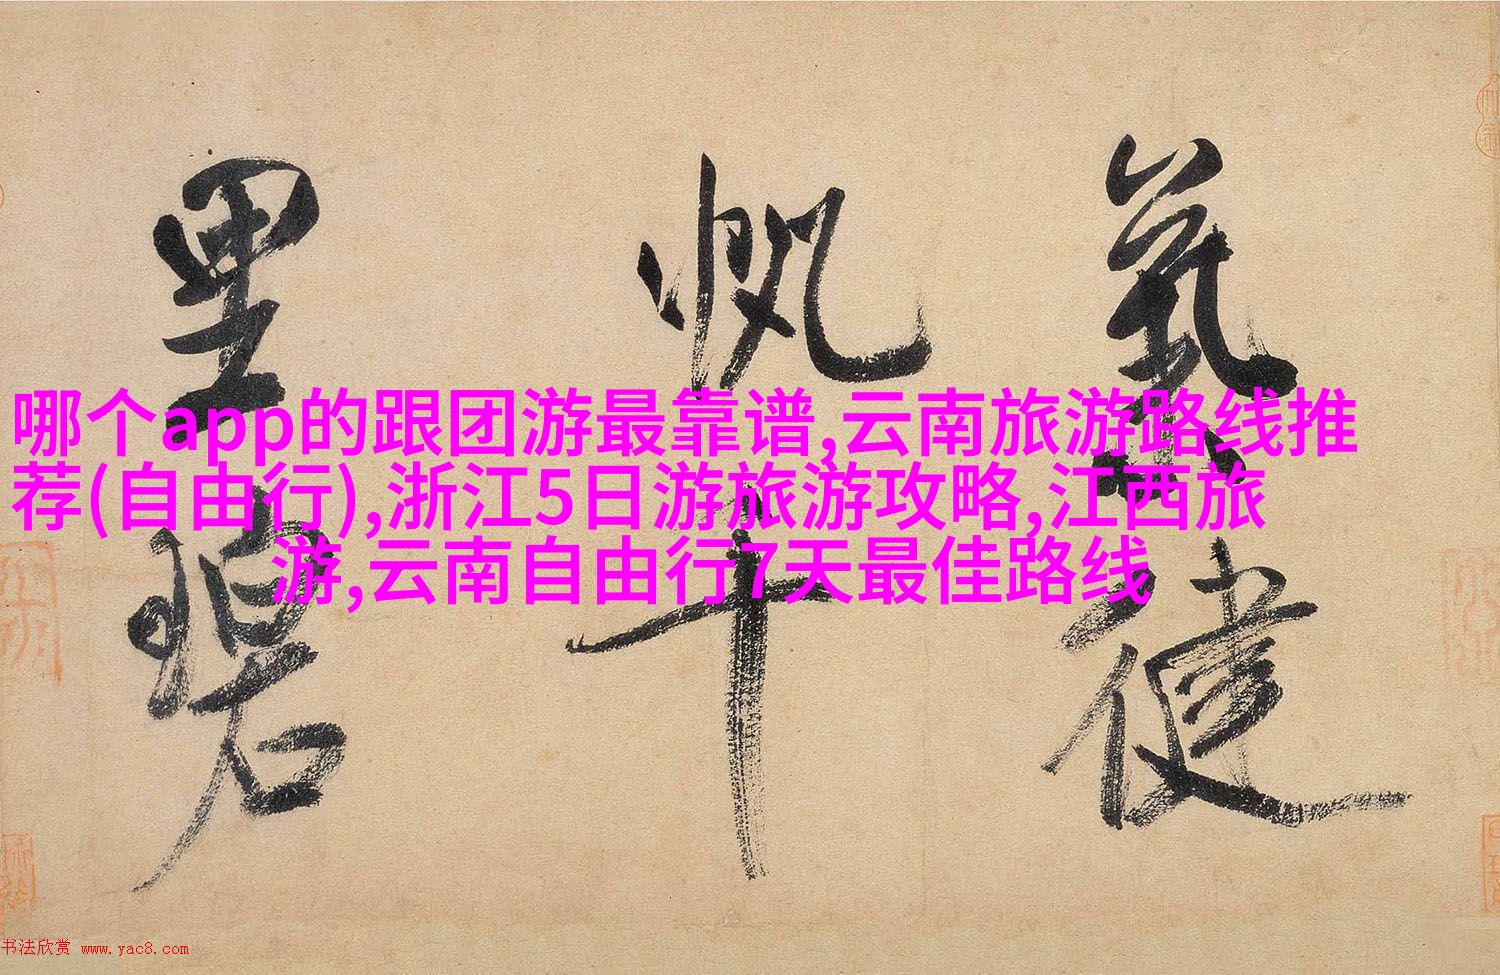 氣健
帆十
里碧
哪个app的跟团游最靠谱,云南旅游路线推
荐(自由行),浙江5日游旅游攻略,江西旅
游,云南自由行7天最佳路线
书法欣赏 www.yac8.com